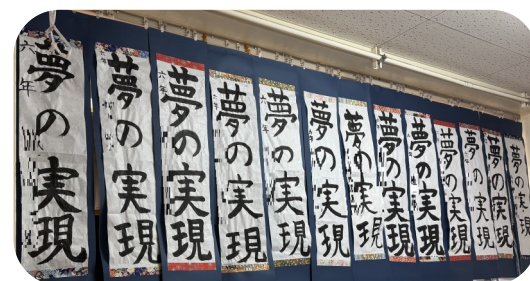 夢の実現
六年
夢の実現
夢の実現
六年
夢の実現
夢の実現
夢の実現
夢の実現
夢の実現
夢の実現
夢の実現
夢の実現
夢の実現
夢の実現